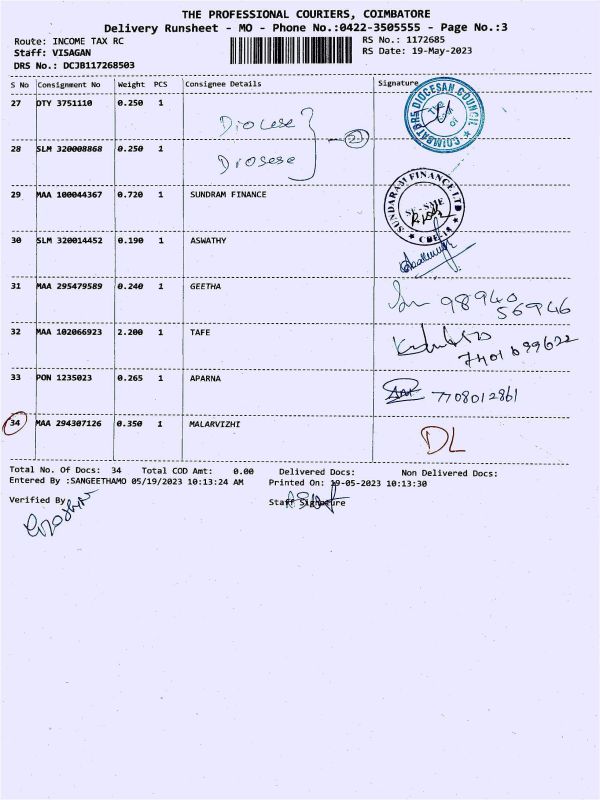 THE PROFESSIONAL COURIERS, COIMBATORE
Delivery Runsheet - MO - Phone No.:0422-3505555 - Page No.:3
Route: INCOME TAX RC RS No.: 1172685
Staff: VISAGAN RS Date: 19-May-2023
DRS No.: DCJB117268503
S No Consignment No Weight PCS Consignee Details Signature
27 OTY 3751110 0.250 1 Diocese
COIMBATORE DIOCESAN COUNCIL
28 SLM 320008868 0.250 1 Diosese
2
29 MAA 100044367 0.720 1 SUNDRAM FINANCE
SUNDARAM FINANCE LTD
SF-SME
CBE-18
30 SLM 320014452 0.190 1 ASWATHY
31 MAA 295479589 0.240 1 GEETHA 98940
56946
32 MAA 102066923 2.200 1 TAFE
7401699622
33 PON 1235023 0.265 1 APARNA 7708012861
34 MAA 294307126 0.350 1 MALARVIZHI DL
Total No. Of Docs: 34 Total COD Amt: 0.00 Delivered Docs: Non Delivered Docs:
Entered By :SANGEETHAMO 05/19/2023 10:13:24 AM Printed On: 19-05-2023 10:13:30
Verified By Staff Signature